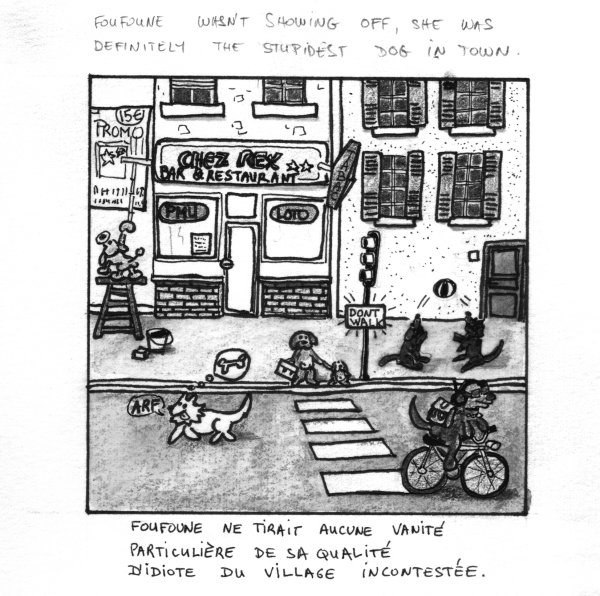 FOUFOUNE WASN'T SHOWING OFF, SHE WAS
DEFINITELY THE STUPIDEST DOG IN TOWN.
15€
PROMO
CHEZ REX
BAR & RESTAURANT
BAR
PMU
LOTO
DONT
WALK
ARF
FOUFOUNE NE TIRAIT AUCUNE VANITÉ
PARTICULIÈRE DE SA QUALITÉ
D'IDIOTE DU VILLAGE INCONTESTÉE.